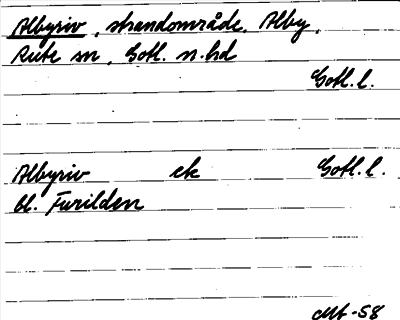 Albyriv, strandområde, Alby,
Rute sn, Gotl. n. hd
Gotl. l.
Albyriv ek Gotl. l.
bl. Furilden
Mt -58